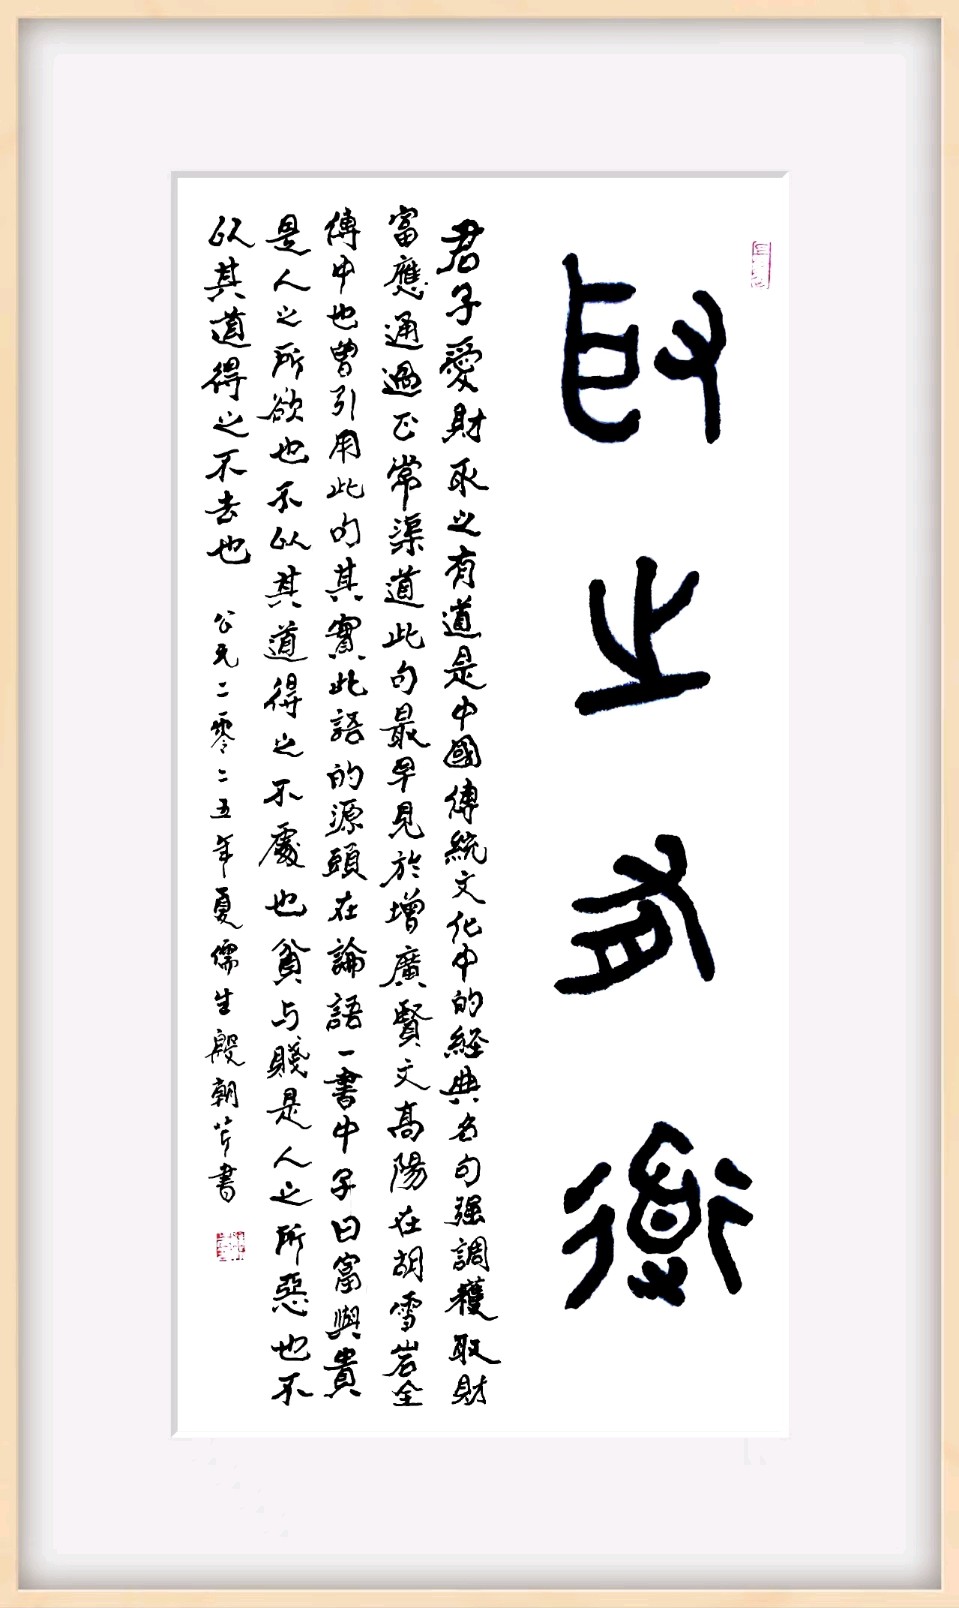 取之有道
君子愛財取之有道是中國傳統文化中的經典名句强調獲取財
富應通過正常渠道此句最早見於增廣賢文高陽在胡雪岩全
傳中也曾引用此句其實此語的源頭在論語一書中子曰富與貴
是人之所欲也不以其道得之不處也貧与賤是人之所惡也不
以其道得之不去也
公元二零二五年夏儒生殷朝芹書